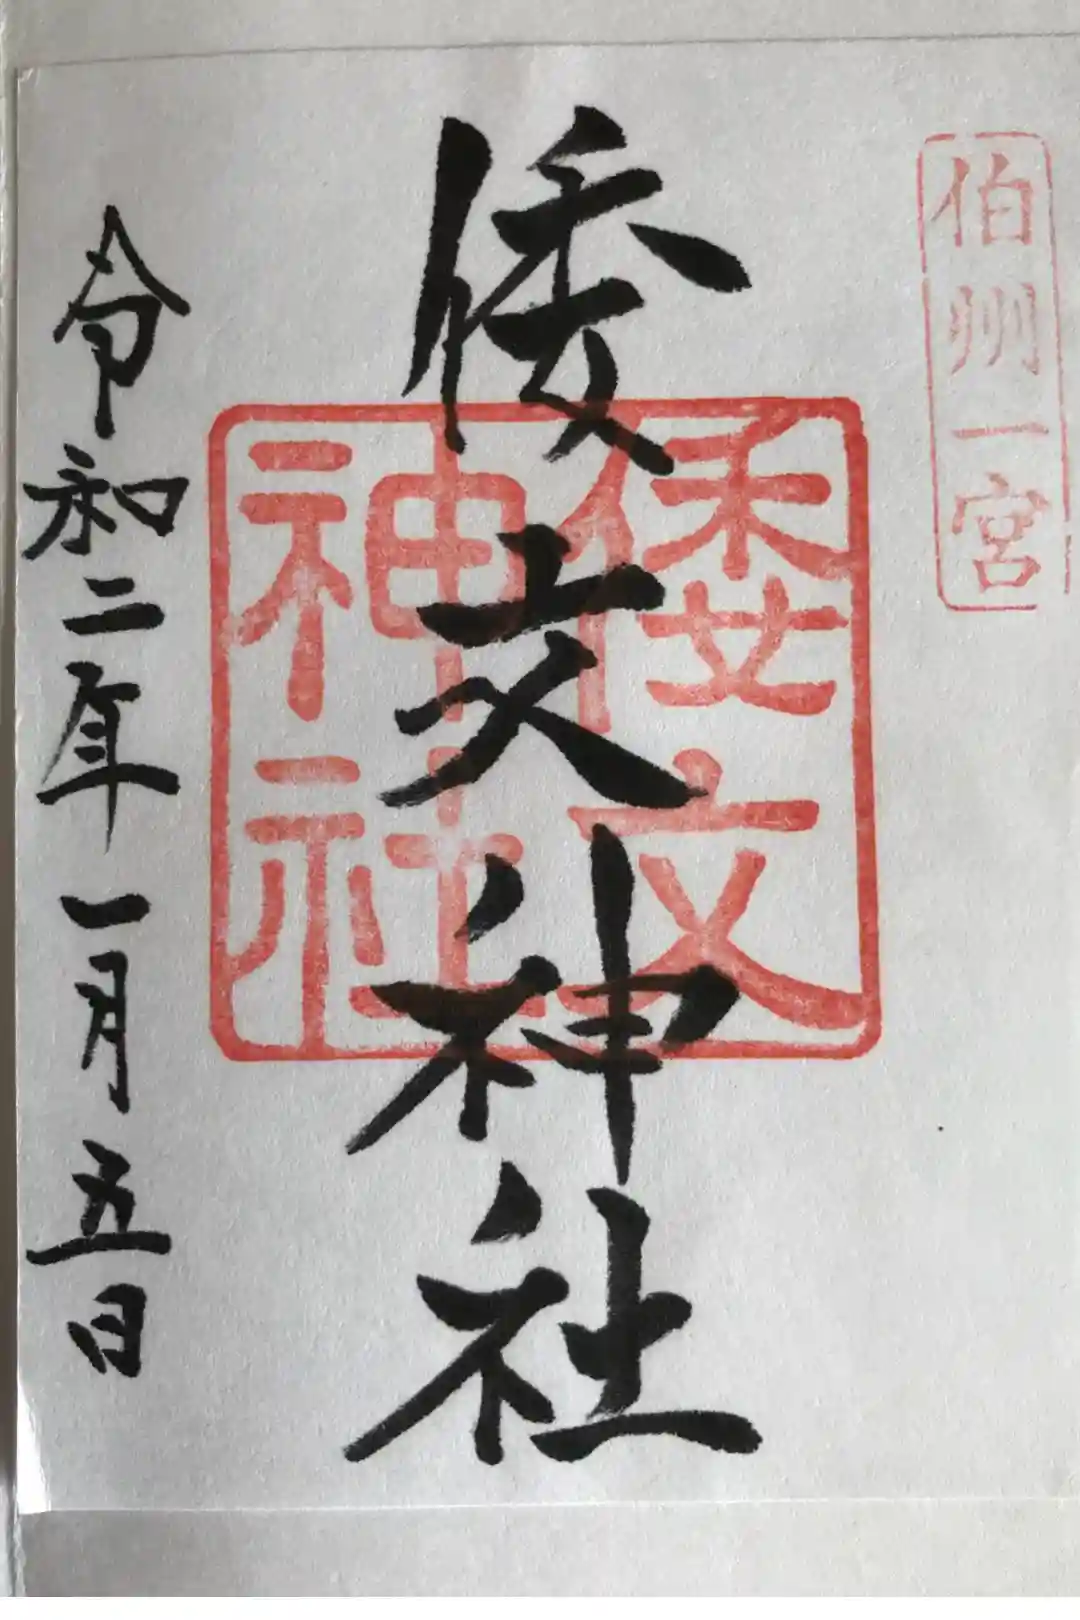 伯州一宮
倭文神社
倭文
神社
令和二年一月五日